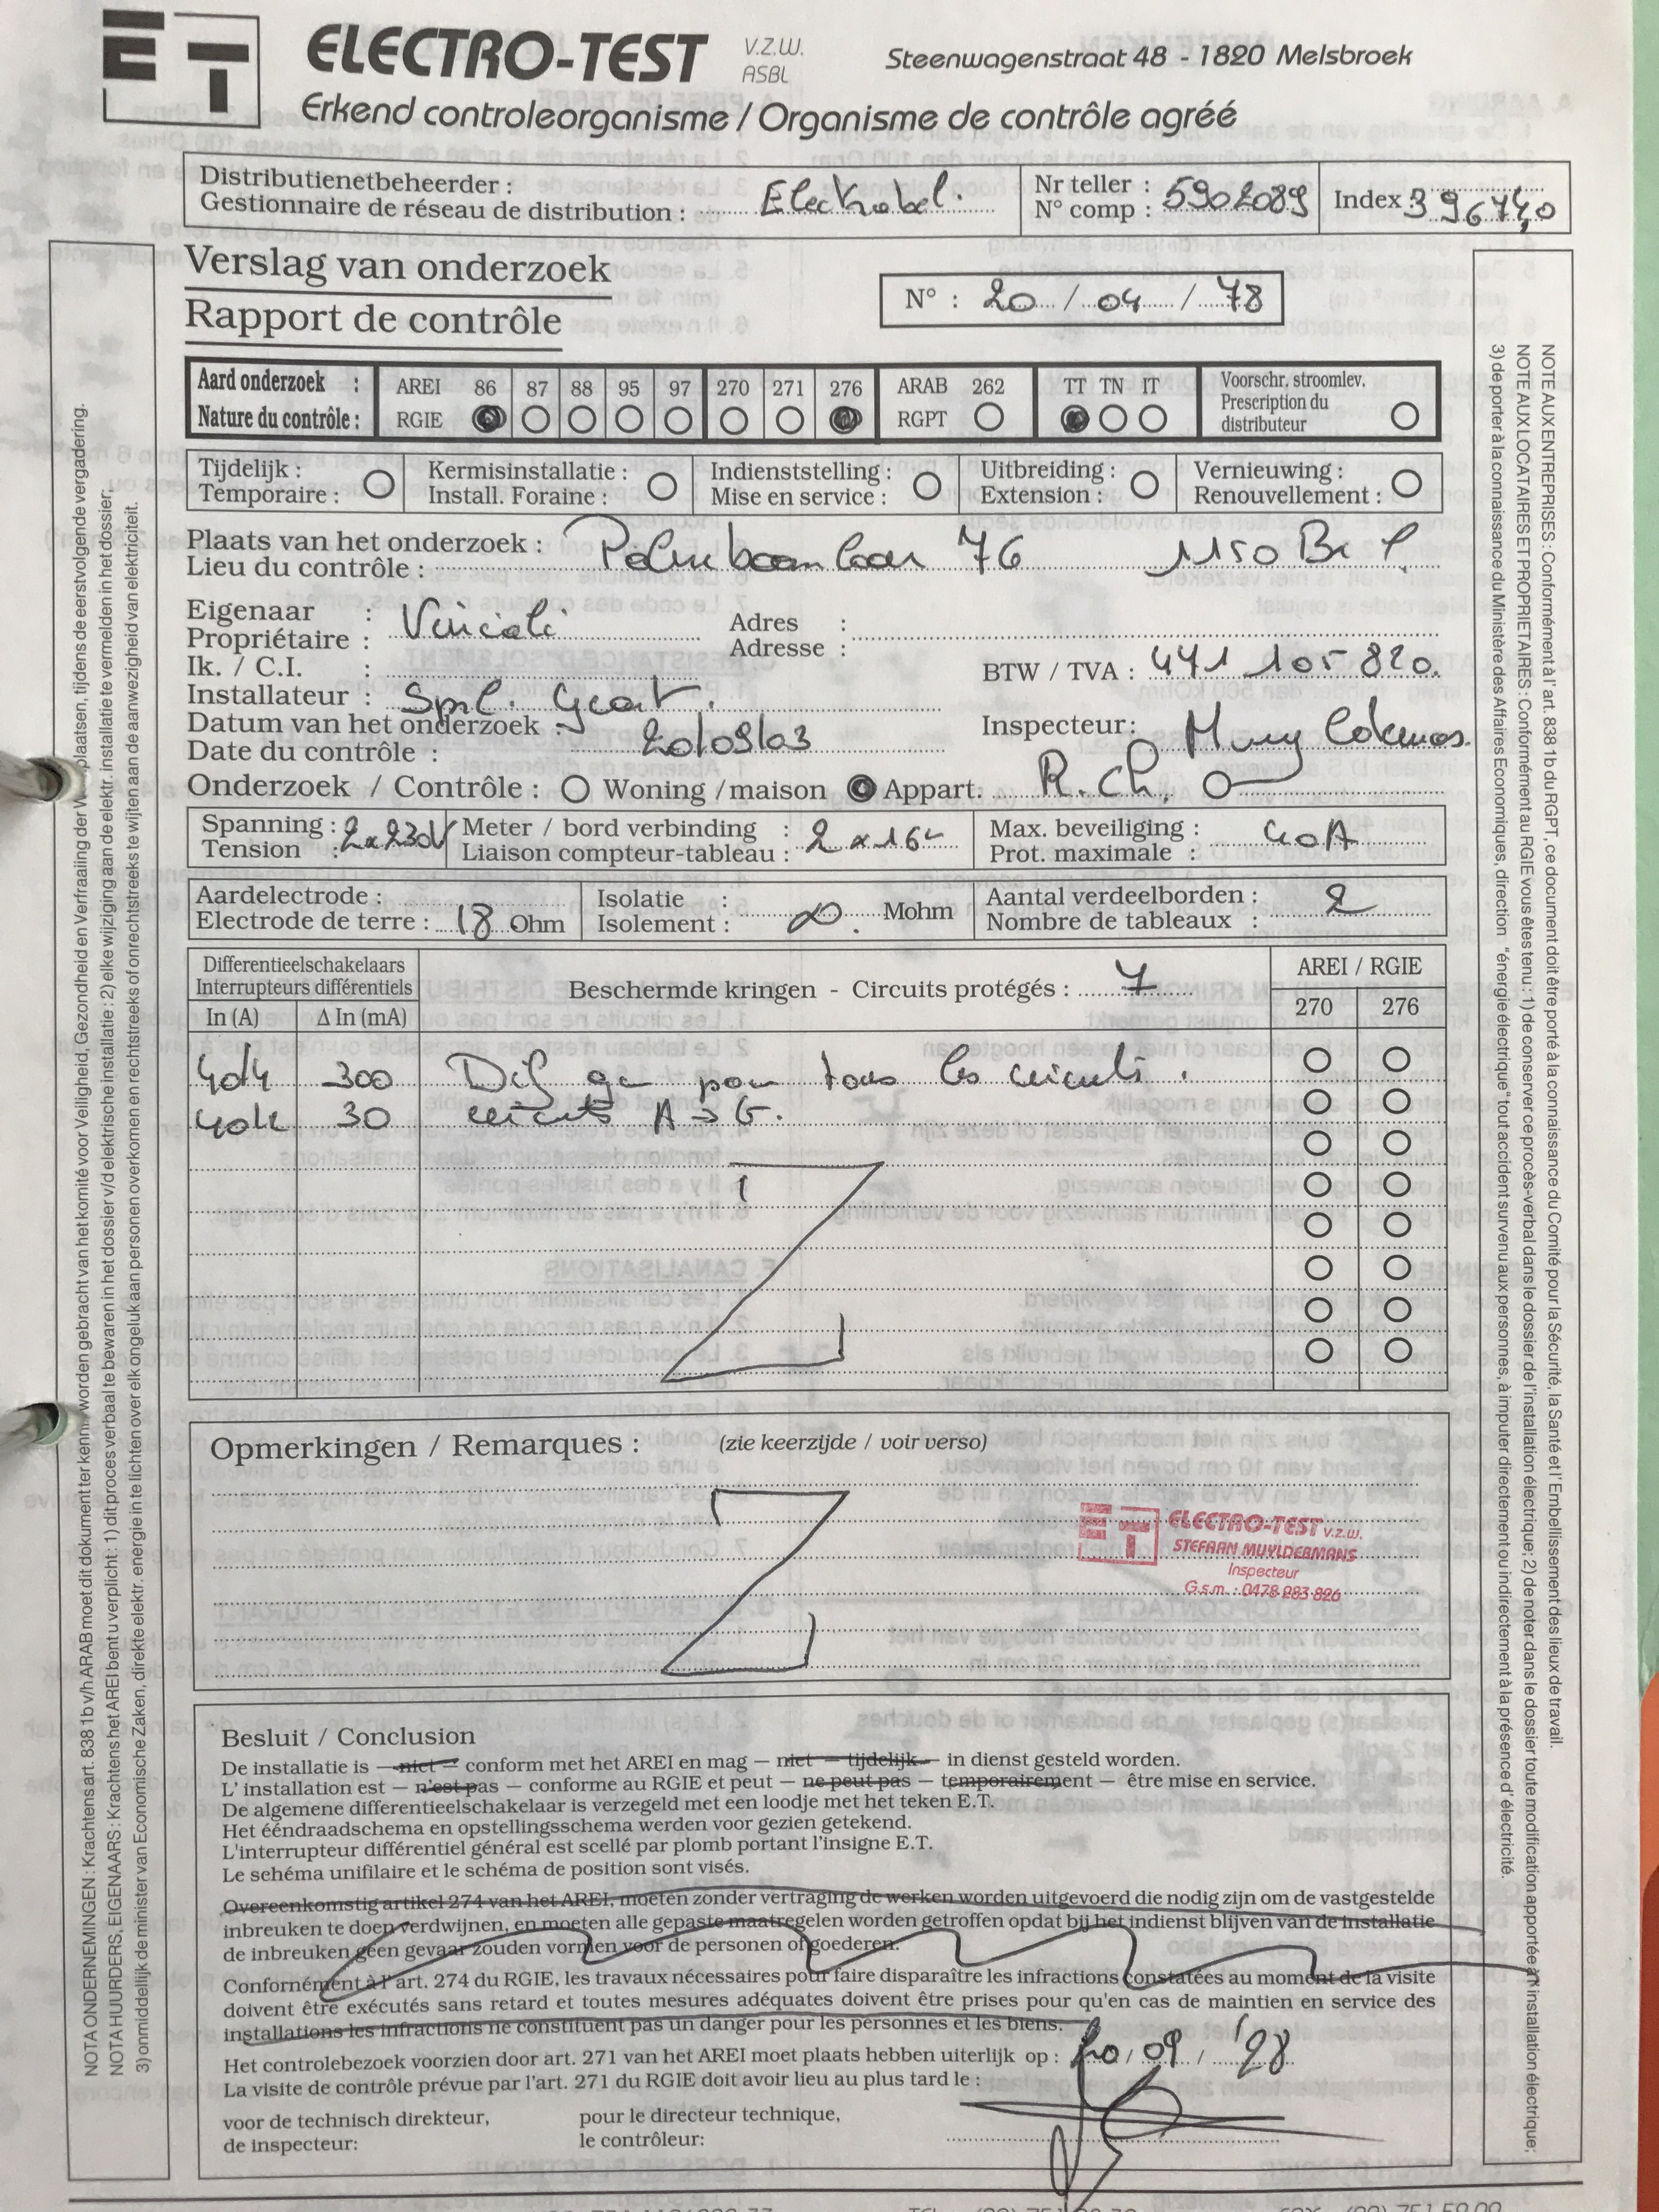 ET
ELECTRO-TEST V.Z.W. ASBL
Steenwagenstraat 48 - 1820 Melsbroek
Erkend controleorganisme / Organisme de contrôle agréé
Distributienetbeheerder :
Gestionnaire de réseau de distribution : Electrabel.
Nr teller :
N° comp : 5902089
Index 39674,0
Verslag van onderzoek
Rapport de contrôle
N° : 20 / 04 / 78
Aard onderzoek :
Nature du contrôle :
AREI 86 87 88 95 97 270 271 276
RGIE
ARAB 262
RGPT
TT TN IT
Voorschr. stroomlev.
Prescription du
distributeur
Tijdelijk :
Temporaire :
Kermisinstallatie :
Install. Foraine :
Indienststelling :
Mise en service :
Uitbreiding :
Extension :
Vernieuwing :
Renouvellement :
Plaats van het onderzoek :
Lieu du contrôle : Palmboomlaan 76 1150 Brl
Eigenaar :
Propriétaire :
Adres :
Adresse :
Ik. / C.I. :
BTW / TVA : 441 105 820.
Installateur : Sprl.
Datum van het onderzoek :
Date du contrôle : 20/09/03
Inspecteur :
Onderzoek / Contrôle : Woning / maison Appart. R.Ch.
Spanning :
Tension : 2x230V
Meter / bord verbinding :
Liaison compteur-tableau : 2 x 16
Max. beveiliging :
Prot. maximale : 40A
Aardelectrode :
Electrode de terre : 18 Ohm
Isolatie :
Isolement : ∞ Mohm
Aantal verdeelborden :
Nombre de tableaux : 2
Differentieelschakelaars
Interrupteurs différentiels
In (A) Δ In (mA)
Beschermde kringen - Circuits protégés : 7
AREI / RGIE
270 276
40/4 300 Dif gen pour tous les circuits.
40/2 30 circuits A → G.
Opmerkingen / Remarques : (zie keerzijde / voir verso)
ET ELECTRO-TEST V.Z.W.
STEFAAN MUYLDERMANS
Inspecteur
G.s.m. : 0478 283 826
Besluit / Conclusion
De installatie is — niet — conform met het AREI en mag — niet — tijdelijk — in dienst gesteld worden.
L' installation est — n'est pas — conforme au RGIE et peut — ne peut pas — temporairement — être mise en service.
De algemene differentieelschakelaar is verzegeld met een loodje met het teken E.T.
Het ééndraadschema en opstellingsschema werden voor gezien getekend.
L'interrupteur différentiel général est scellé par plomb portant l'insigne E.T.
Le sehéma unifilaire et le schéma de position sont visés.
Overeenkomstig artikel 274 van het AREI, moeten zonder vertraging de werken worden uitgevoerd die nodig zijn om de vastgestelde
inbreuken te doen verdwijnen, en moeten alle gepaste maatregelen worden getroffen opdat bij het indienst blijven van de installatie
de inbreuken geen gevaar zouden vormen voor de personen of goederen.
Confornément à l' art. 274 du RGIE, les travaux nécessaires pour faire disparaître les infractions constatées au moment de la visite
doivent être exécutés sans retard et toutes mesures adéquates doivent être prises pour qu'en cas de maintien en service des
installations les infractions ne constituent pas un danger pour les personnes et les biens.
Het controlebezoek voorzien door art. 271 van het AREI moet plaats hebben uiterlijk op : 20 / 09 / '28
La visite de contrôle prévue par l'art. 271 du RGIE doit avoir lieu au plus tard le :
voor de technisch direkteur,
de inspecteur:
pour le directeur technique,
le contrôleur:
NOTA ONDERNEMINGEN : Krachtens art. 838 1b v/h ARAB moet dit dokument ter kennis worden gebracht van het komité voor Veiligheid, Gezondheid en Verfraaiing der plaatsen, tijdens de eerstvolgende vergadering.
NOTA HUURDERS, EIGENAARS : Krachtens het AREI bent u verplicht : 1) dit proces verbaal te bewaren in het dossier v/d elektrische installatie : 2) elke wijziging aan de elektr. installatie te vermelden in het dossier,
3) onmiddellijk de minister van Economische Zaken, direktie elektr. energie in te lichten over elk ongeluk aan personen overkomen en rechtstreeks of onrechtstreeks te wijten aan de aanwezigheid van elektriciteit.
NOTE AUX ENTREPRISES : Conformément à l' art. 838 1b du RGPT, ce document doit être porté à la connaissance du Comité pour la Sécurité, la Santé et l' Embellissement des lieux de travail.
NOTE AUX LOCATAIRES ET PROPRIETAIRES : Conformément au RGIE vous êtes tenu : 1) de conserver ce procès-verbal dans le dossier de l'installation électrique; 2) de noter dans le dossier toute modification apportée à l' installation électrique;
3) de porter à la connaissance du Ministère des Affaires Economiques, direction "énergie électrique" tout accident survenu aux personnes, à imputer directement ou indirectement à la présence d' électricité.